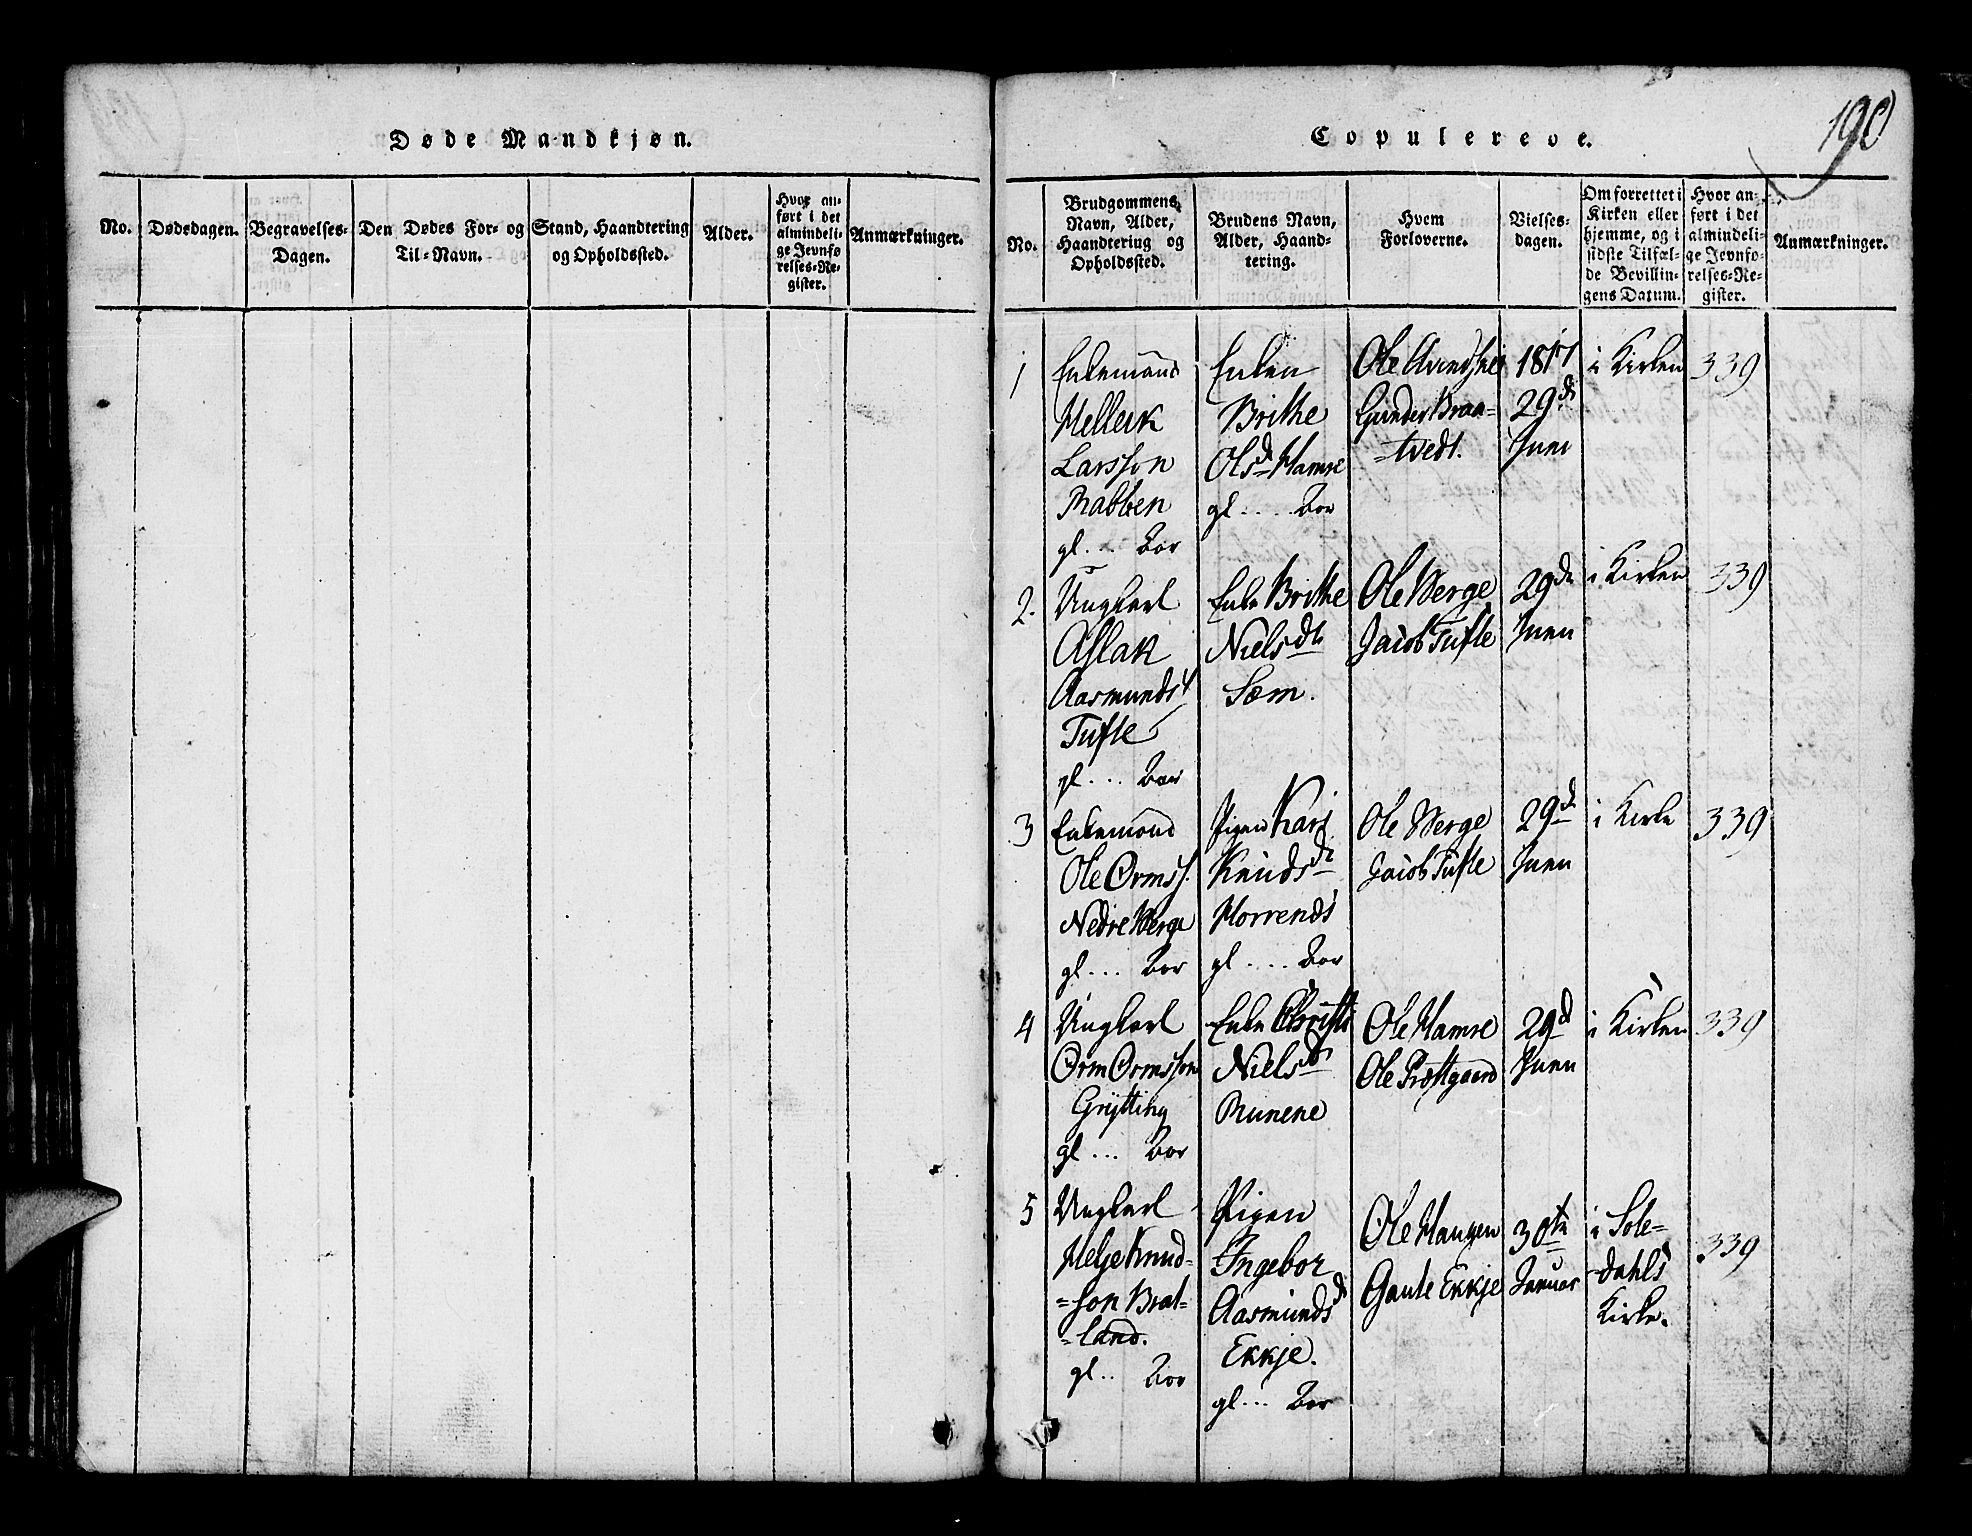 Døde Mandkjøn.
No.
Dødsdagen.
Begravelses-
Dagen.
Den Dødes For- og
Til-Navn.
Stand, Haandtering
og Opholdssted.
Alder.
Hvor an-
ført i det
almindeli-
ge Jevnfø-
relses-Re-
gister.
Anmærkninger.
190
Copulereve.
No.
Brudgommens
Navn, Alder,
Haandtering og
Opholdssted.
Brudens Navn,
Alder, Haand-
tering.
Hvem
Forloverne.
Vielses-
dagen.
Om forrettet i
Kirken eller
hjemme, og i
sidste Tilfæl-
de Bevillin-
gens Datum.
Hvor an-
ført i det
almindeli-
ge Jevnfø-
relses-Re-
gister.
Anmærkninger.
1
Enkemand
Helleik
Larsson
Rabben
gl. .. Aar
Enken
Brithe
Olsd Hamre
gl. ... Aar
Ole
Gunder Braa-
=tvedt.
1817
29de
Juni
i Kirken
339
2.
Ungkarl
Aslak
Aasmunds
Tufte
gl. ... Aar
Enke Brithe
Nielsdtr
Sæm.
Ole Berge
Jacob Tufte
29de
Juni
i Kirken
339
3
Enkemand
Ole Ormss.
Nedre Berge
gl. .. Aar
Pigen Kari
Knudsdtr
Horrends
gl. ... Aar
Ole Berge
Jacob Tufte
29de
Juni
i Kirke
339
4
Ungkarl
Orm Ormsson
Grytting
gl ... Aar
Enke Christi
Nielsdtr
Runene
Ole Hamre
Ole Præstgaard
29d
Juni
i Kirken
339
5
Ungkarl
Helje Knud-
=son Brat-
=land.
gl.. Aar
Pigen
Ingebor
Aasmundsd
Ekkje.
gl... Aar
Ole Haugen
Gaute Ekkje
30te
Januar
i Sole-
dahls
Kirke.
339